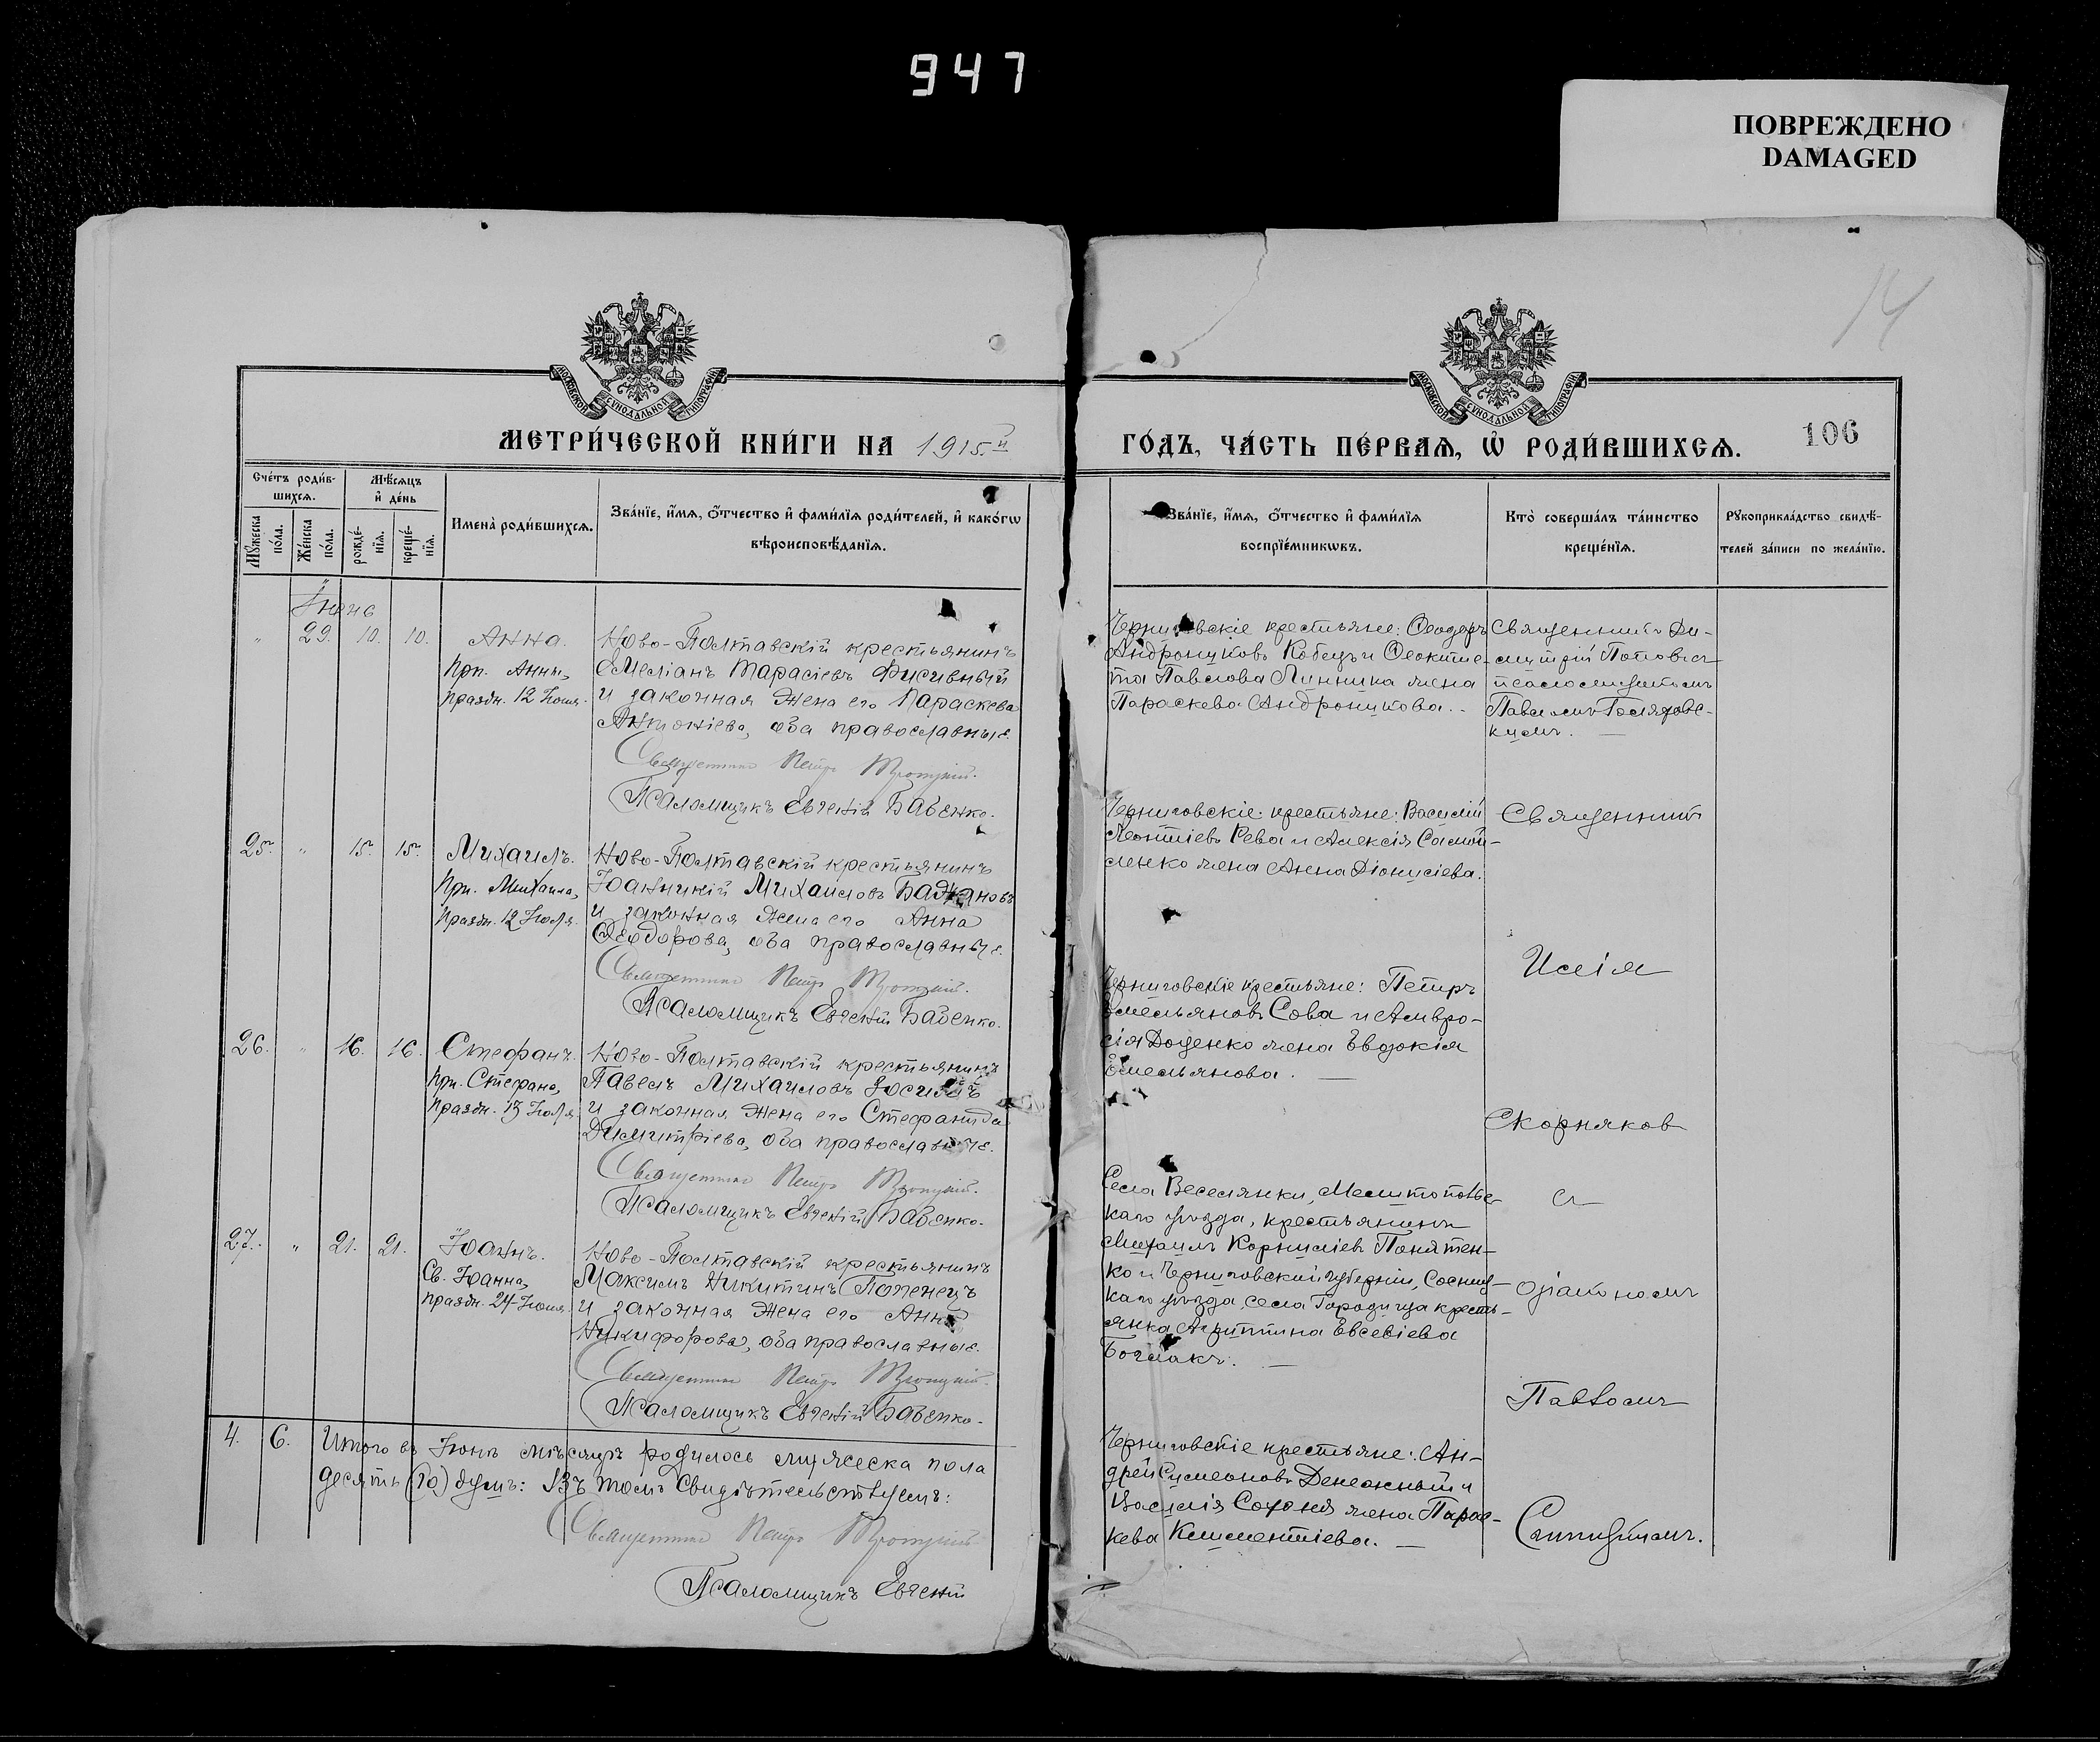 947
ПОВРЕЖДЕНО
DAMAGED
14
МОСКОВСКОЙ СѴНОДАЛЬНОЙ ТИПОГРАФІИ
МОСКОВСКОЙ СѴНОДАЛЬНОЙ ТИПОГРАФІИ
МЕТРИ́ЧЕСКОЙ КНИ́ГИ НА 1915.й
ГО́ДЪ, ЧА́СТЬ ПЕ́РВАѦ, Ѡ҆ РОДИ́ВШИХСѦ.
106
Сче́тъ роди́в-
шихсѧ.
Мꙋжеска по́ла.
Же́нска по́ла.
Мѣ́сѧцъ
и҆ де́нь
рожде́-
нїѧ.
креще́-
нїѧ.
Имена̀ роди́вшихсѧ.
Зва́нїе, и҆́мѧ, ѻ҆́тчество и҆ фами́лїѧ роди́телей, и҆ како́гѡ
вѣроисповѣ́данїѧ.
Зва́нїе, и҆́мѧ, ѻ҆́тчество и҆ фами́лїѧ
воспрїе́мникѡвъ.
Кто̀ соверша́лъ та́инство
креще́нїѧ.
Рꙋкоприкла́дство свидѣ́-
телей за́писи по жела́нїю.
Іюнь
" 29. 10. 10. Анна.
Прп. Анны,
праздн. 12 Іюня.
Ново-Полтавскій крестьянинъ
Емеліанъ Тарасіевъ Фисивный
и законная жена его Параскева
Антоніева, оба православные.
Священникъ Петръ Троицкій.
Псаломщикъ Евгеній Бабенко.
Черниговскіе крестьяне: Ѳеодоръ
Андрониковъ Кобецъ и Ѳеокти-
та Павлова Линника жена
Параскева Андроникова.
Священникъ Ди-
митрій Поповъ съ
псаломщикомъ
Павломъ
25. " 15. 15. Михаилъ.
Прп. Михаила,
праздн. 12 Іюля.
Ново-Полтавскій крестьянинъ
Іоанникій Михаиловъ Бажановъ
и законная жена его Анна
Ѳеодорова, оба православные.
Священникъ Петръ Троицкій.
Псаломщикъ Евгеній Бабенко.
Черниговскіе крестьяне: Василій
Леонтіевъ Рева и Алексія Самой-
ленко жена Анна Діонисіева.
Священникъ
Илія
26. " 16. 16. Стефанъ.
Прп. Стефана,
праздн. 13 Іюля.
Ново-Полтавскій крестьянинъ
Павелъ Михаиловъ
и законная жена его Стефанида
Димитріева, оба православные.
Священникъ Петръ Троицкій.
Псаломщикъ Евгеній Бабенко.
Черниговскіе крестьяне: Петръ
Емельяновъ Сова и Амвро-
сія Доценко жена Евдокія
Емельянова.
Скорняков
съ
27. " 21. 21. Іоаннъ.
Св. Іоанна,
праздн. 24 Іюня.
Ново-Полтавскій крестьянинъ
Максимъ Никитинъ Попенецъ
и законная жена его Анна
Никифорова, оба православные.
Священникъ Петръ Троицкій.
Псаломщикъ Евгеній Бабенко.
Села Веселянки, Мелитопольс-
каго уѣзда, крестьянинъ
Михаилъ Корниліевъ Понятен-
ко и Черниговской губерніи, Сосниц-
каго уѣзда, села Городища кресть-
янка Агриппина Евсевіева
діакономъ
Павломъ
4. 6. Итого въ Іюнѣ мѣсяцѣ родилось мужеска пола
десять (10) душъ: Въ томъ свидѣтельствуемъ:
Священникъ Петръ Троицкій
Псаломщикъ Евгеній
Черниговскіе крестьяне: Ан-
дрей Симеоновъ Денежный и
Василія жена Парас-
кева Климентіева.